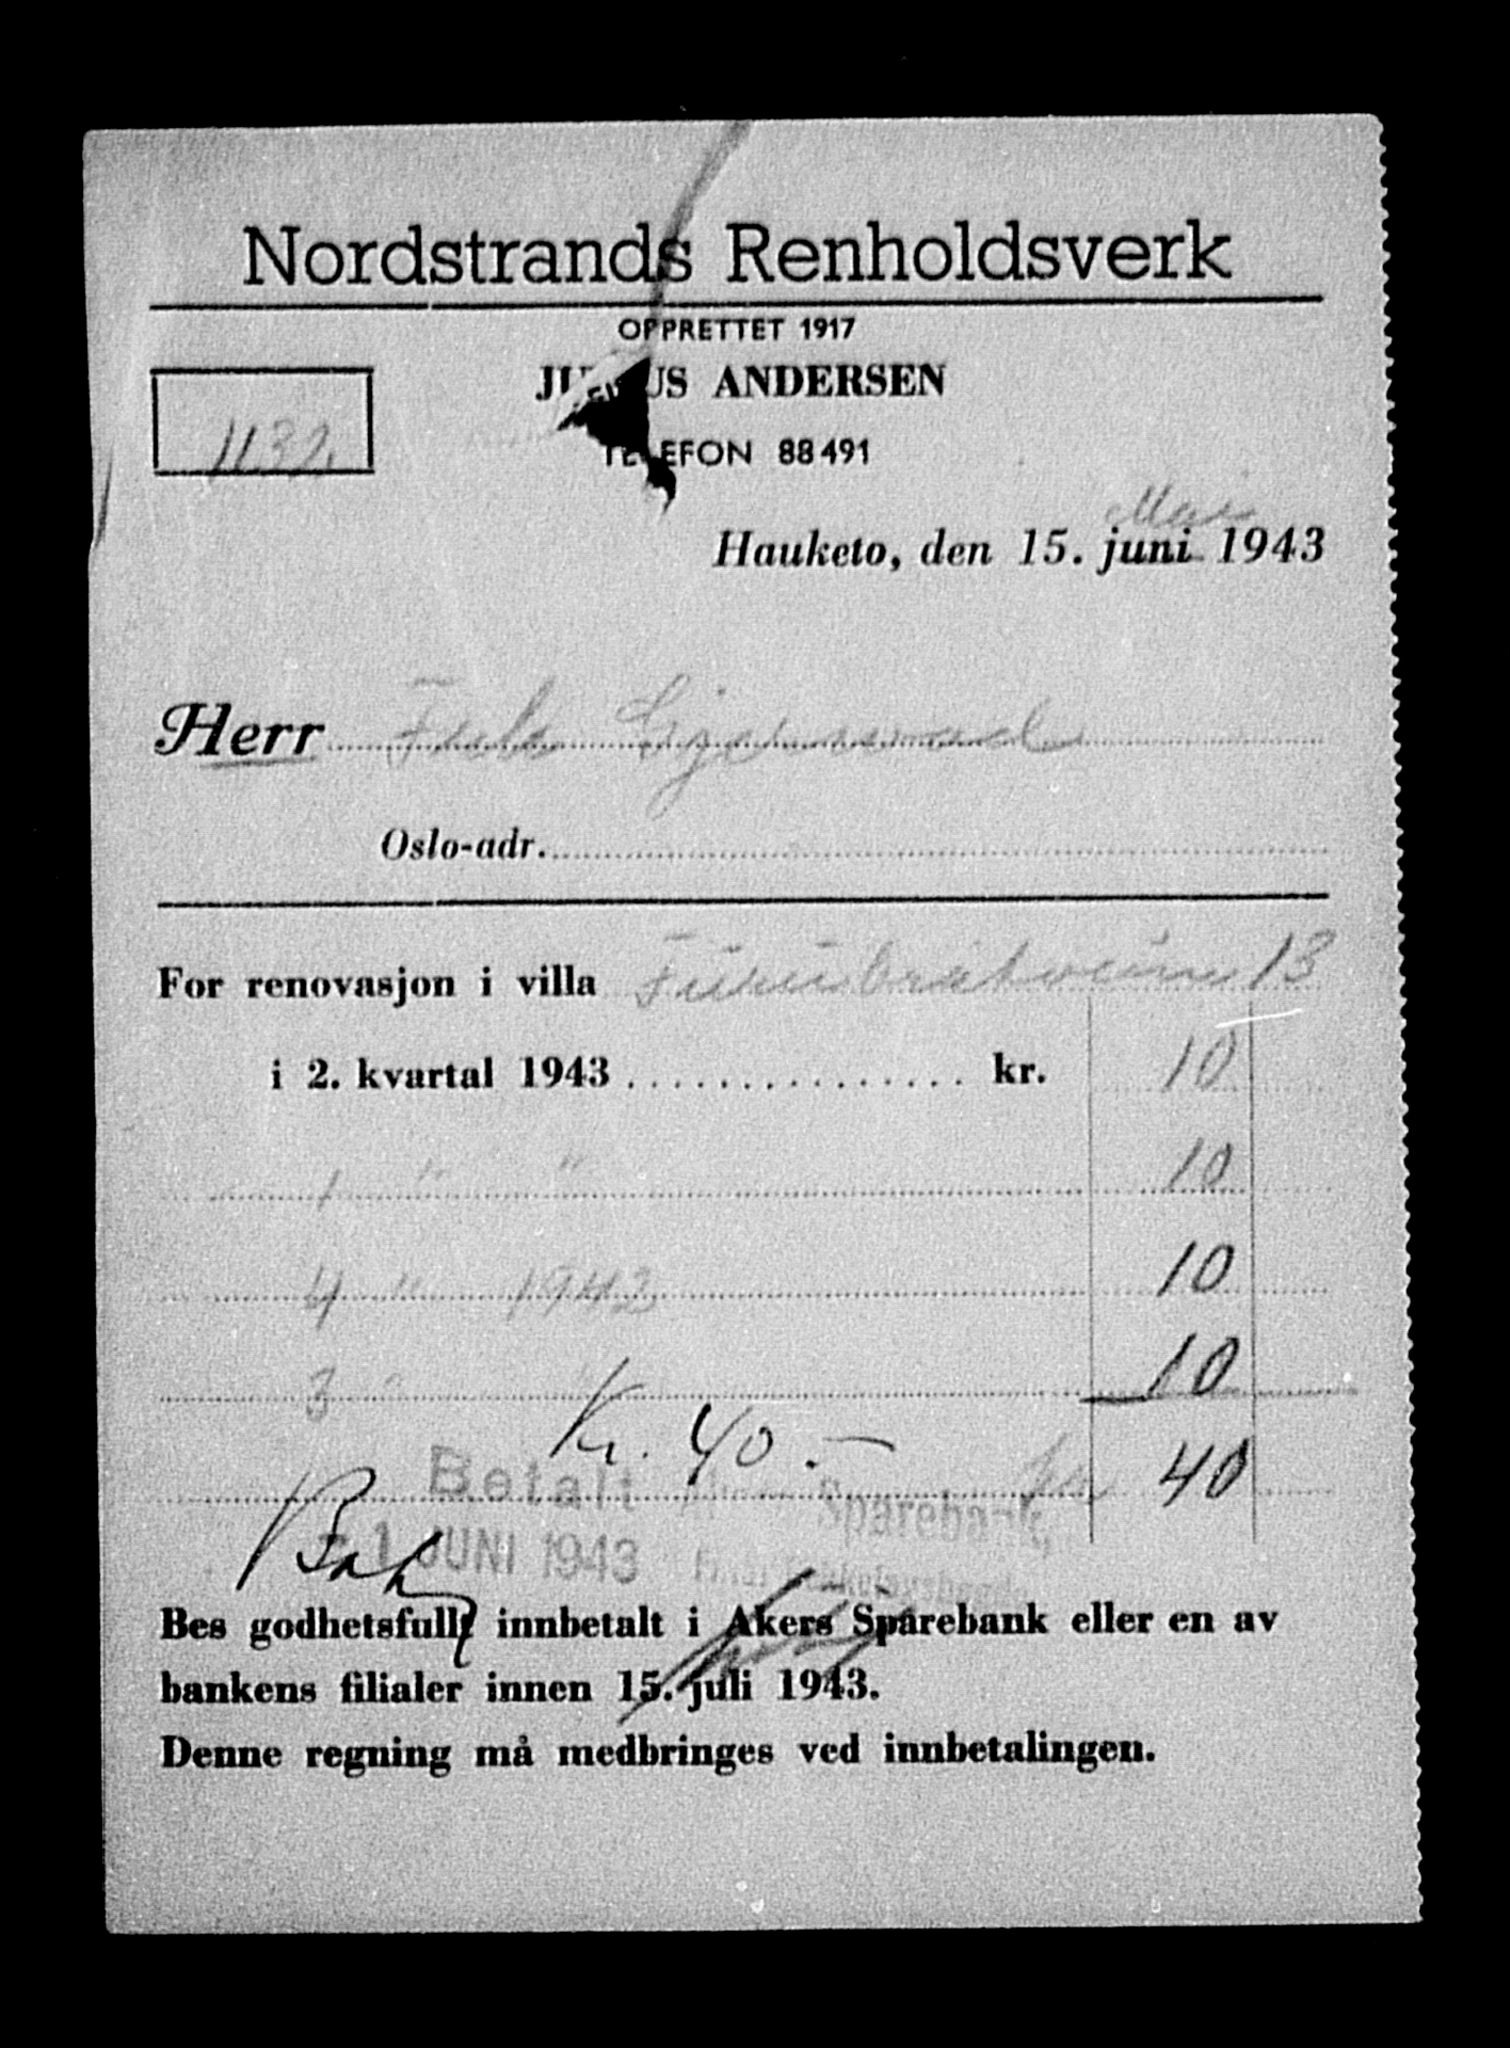 Nordstrands Renholdsverk
OPPRETTET 1917
JULIUS ANDERSEN
1132.
TELEFON 88491
Mai
Hauketo, den 15. juni 1943
Herr
Oslo-adr.
For renovasjon i villa 13
i 2. kvartal 1943 ............... kr. 10
1 " " 10
4 " 1942 10
3 " " 10
Kr. 40.- 40
Betalt
Sparebank,
- 1 JUNI 1943
Bes godhetsfullt innbetalt i Akers Sparebank eller en av
bankens filialer innen 15. juli 1943.
Denne regning må medbringes ved innbetalingen.